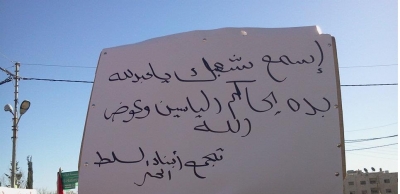 إسمع شعبك ياعبدلله
بده يحاكم الياسين وعوض
الله
تجمع أبناء السلط
الحر